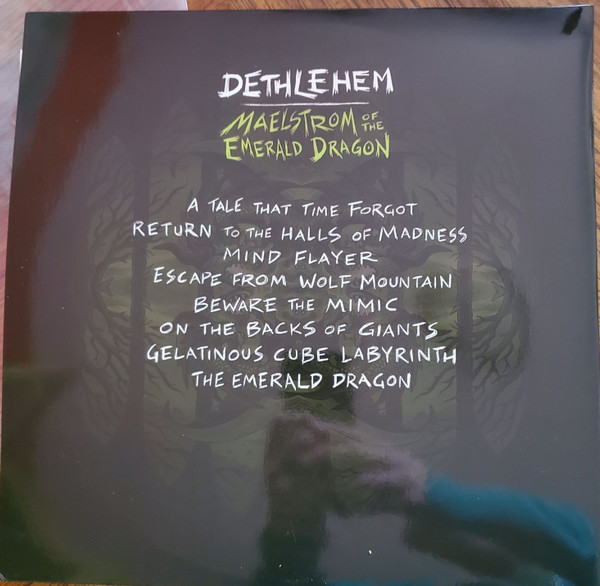 DETHLEHEM
MAELSTROM OF THE
EMERALD DRAGON
A TALE THAT TIME FORGOT
RETURN TO THE HALLS OF MADNESS
MIND FLAYER
ESCAPE FROM WOLF MOUNTAIN
BEWARE THE MIMIC
ON THE BACKS OF GIANTS
GELATINOUS CUBE LABYRINTH
THE EMERALD DRAGON